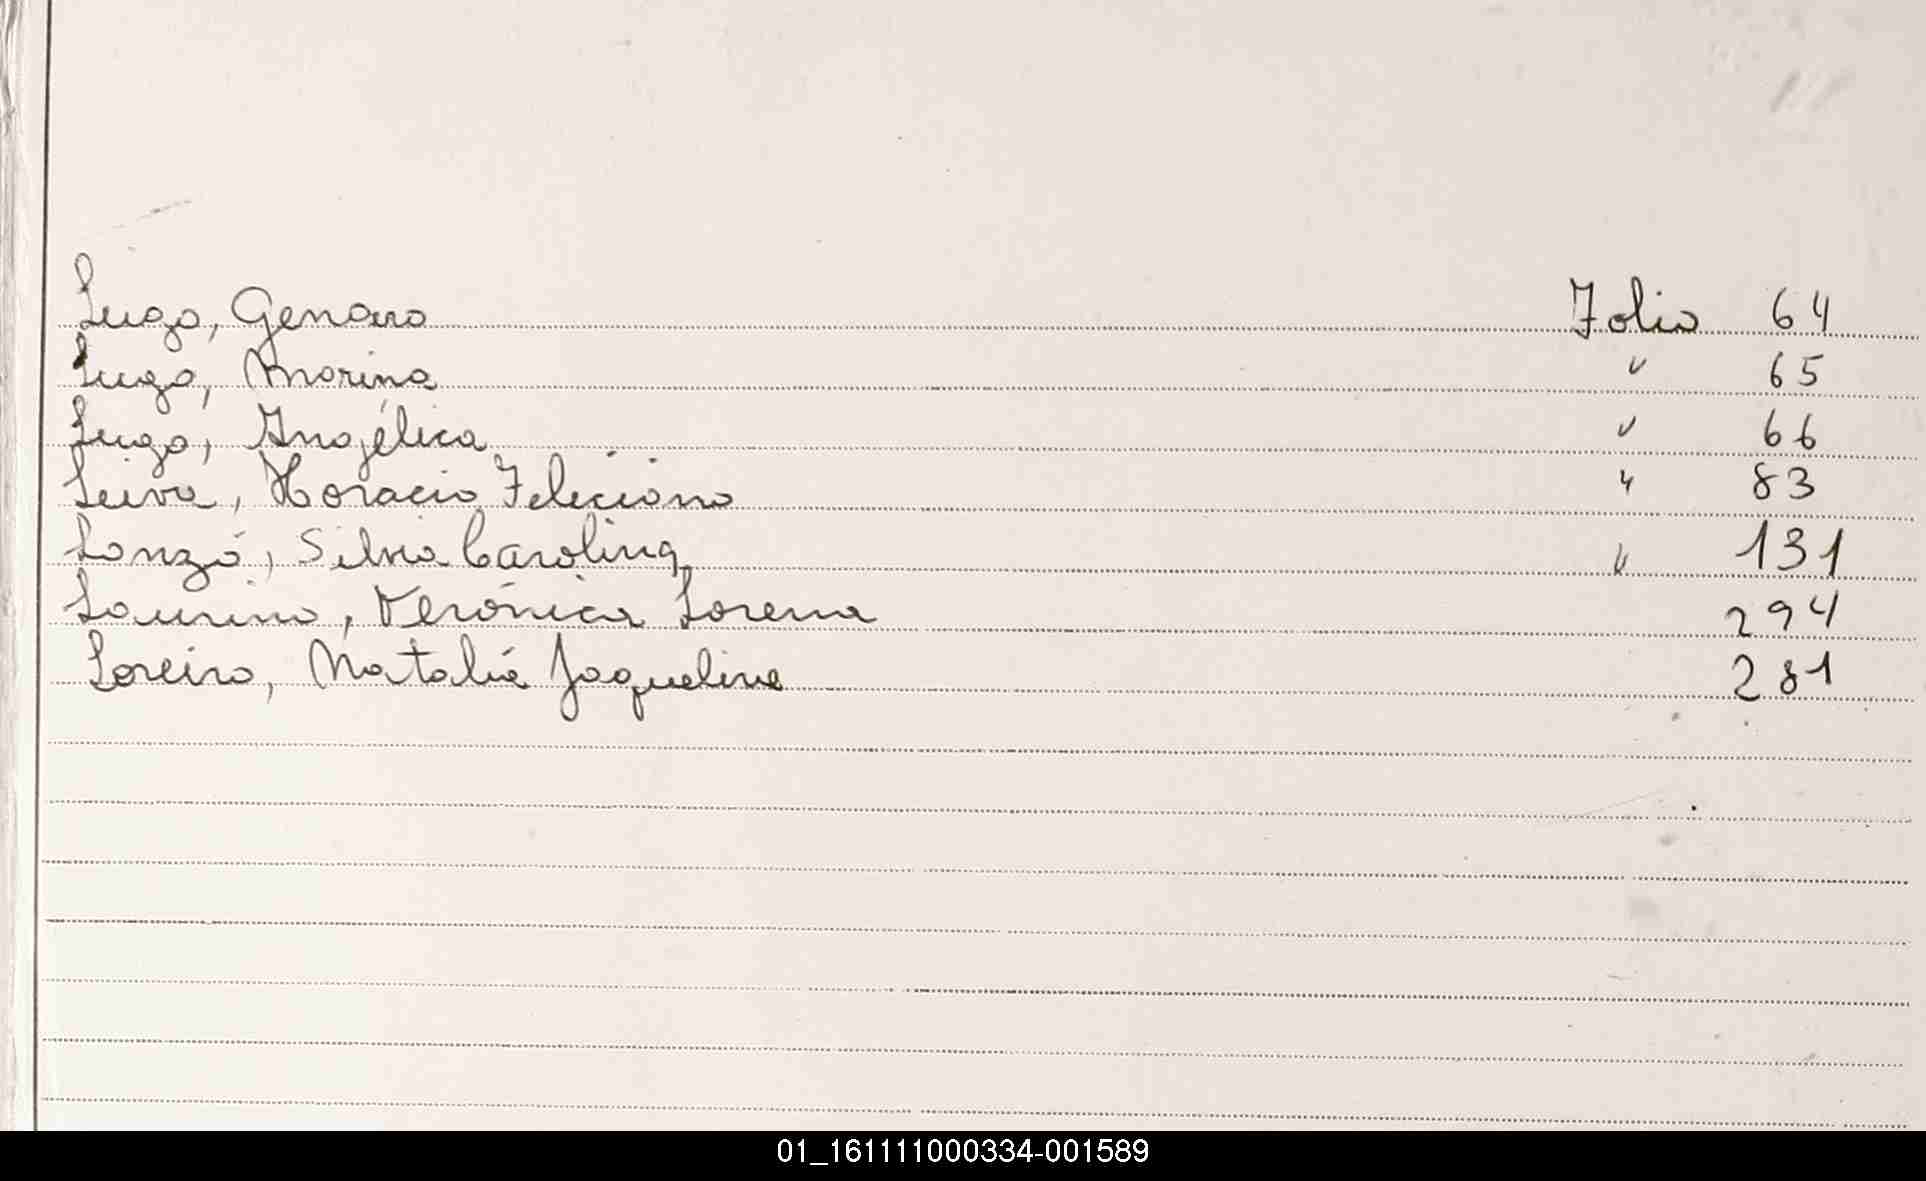 Lugo, Genaro Folio 64
Lugo, Marina " 65
Lugo, Angélica " 66
Leiva, Horacio Feliciano " 83
Lanzó, Silvia Carolina " 131
Laurino, Verónica Lorena 294
Loreiro, Natalia Jaqueline 281
01_161111000334-001589